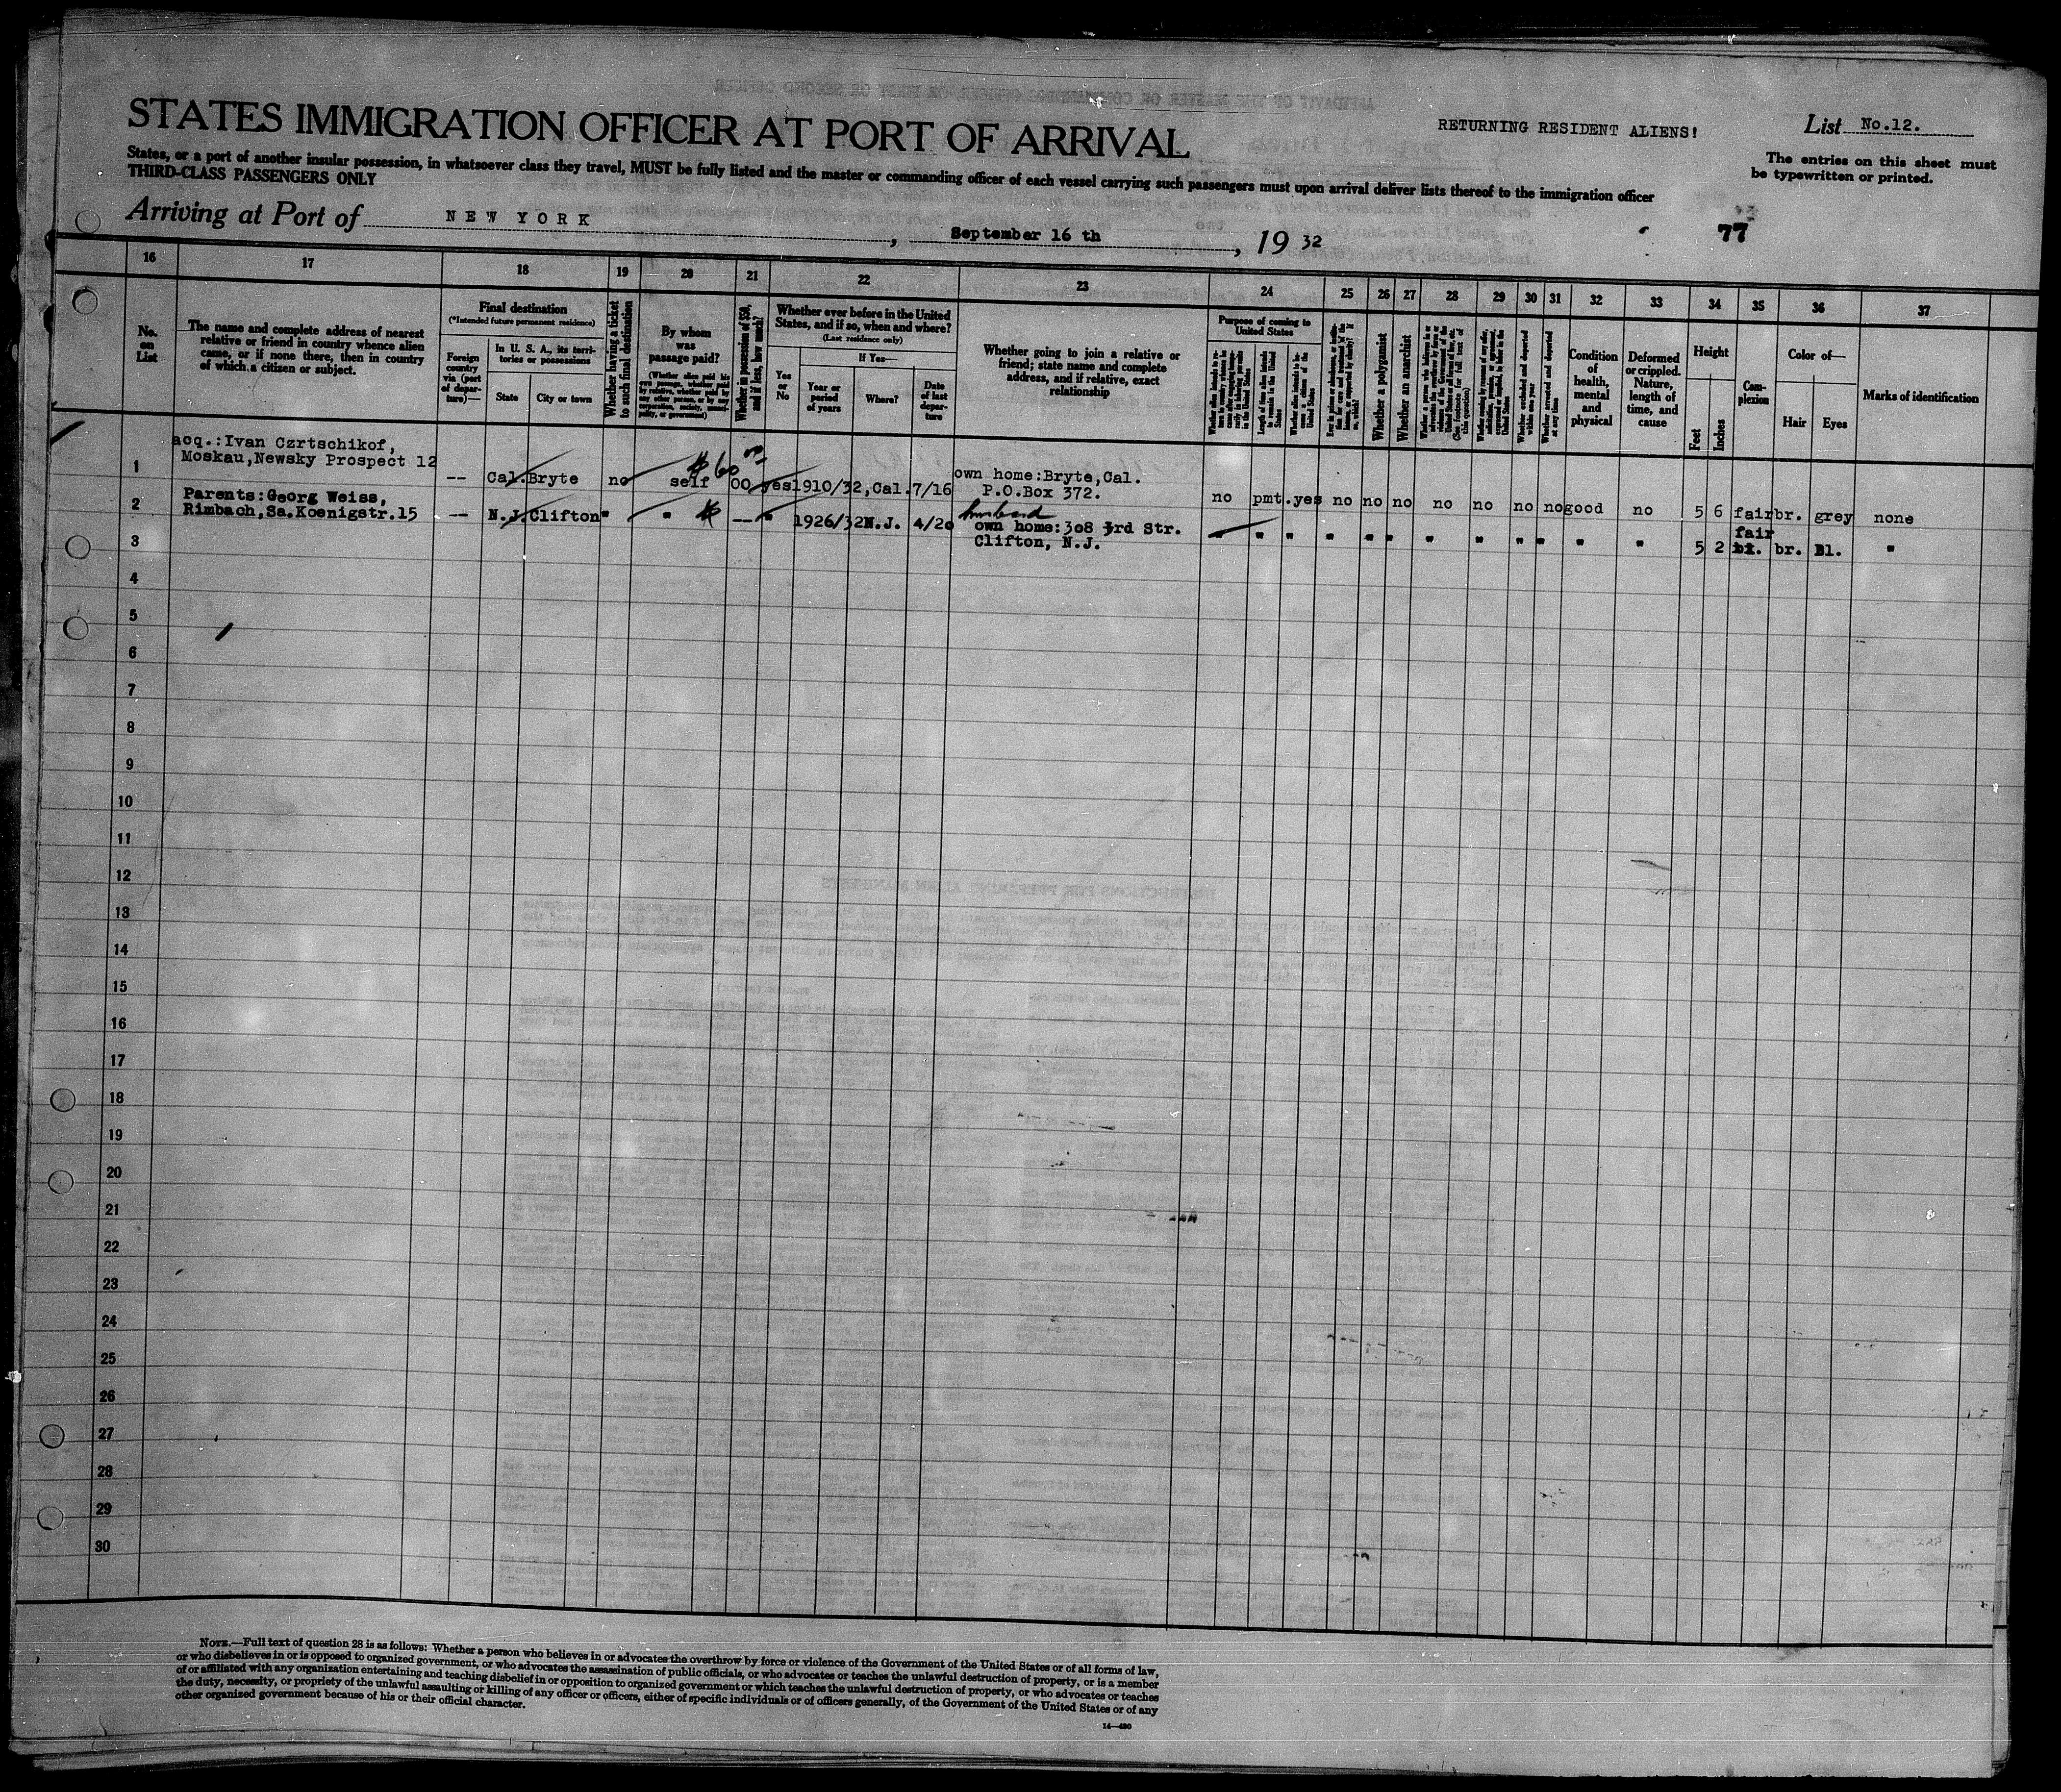 STATES IMMIGRATION OFFICER AT PORT OF ARRIVAL
RETURNING RESIDENT ALIENS!
List No.12.
The entries on this sheet must
be typewritten or printed.
States, or a port of another insular possession, in whatsoever class they travel, MUST be fully listed and the master or commanding officer of each vessel carrying such passengers must upon arrival deliver lists thereof to the immigration officer
THIRD-CLASS PASSENGERS ONLY
Arriving at Port of NEW YORK, September 16 th, 19 32
77
16 17 18 19 20 21 22 23 24 25 26 27 28 29 30 31 32 33 34 35 36 37
No.
on
List
The name and complete address of nearest
relative or friend in country whence alien
came, or if none there, then in country
of which a citizen or subject.
Final destination
(*Intended future permanent residence)
Foreign
country
via (port
of depar-
ture)—
In U. S. A., its terri-
tories or possessions
State
City or town
Whether having a ticket
to such final destination
By whom
was
passage paid?
(Whether alien paid his
own passage, whether paid
by relative, whether paid by
any other person, or by any
corporation, society, munici-
pality, or government)
Whether in possession of $50,
and if less, how much?
Whether ever before in the United
States, and if so, when and where?
(Last residence only)
Yes
or
No
If Yes—
Year or
period
of years
Where?
Date
of last
depar-
ture
Whether going to join a relative or
friend; state name and complete
address, and if relative, exact
relationship
Purpose of coming to
United States
Length of time alien intends
to remain in the United
States
Whether a polygamist
Whether an anarchist
Whether excluded and deported
within one year
Whether arrested and deported
at any time
Condition
of
health,
mental
and
physical
Deformed
or crippled.
Nature,
length of
time, and
cause
Height
Feet
Inches
Com-
plexion
Color of—
Hair
Eyes
Marks of identification
acq.:Ivan Czrtschikof,
Moskau,Newsky Prospect 12
1 -- Cal. Bryte no self $60 00 yes 1910/32, Cal. 7/16 own home:Bryte,Cal.
P.O.Box 372. no pmt. yes no no no no no no no good no 5 6 fair br. grey none
Parents:Georg Weiss,
2 Rimbach,Sa.Koenigstr.15 -- N.J. Clifton " " $ -- " 1926/32 N.J. 4/20 husband
own home:308 3rd Str.
Clifton, N.J. " " " " " " " " " " " 5 2 fair br. Bl. "
3
4
5
6
7
8
9
10
11
12
13
14
15
16
17
18
19
20
21
22
23
24
25
26
27
28
29
30
NOTE.—Full text of question 28 is as follows: Whether a person who believes in or advocates the overthrow by force or violence of the Government of the United States or of all forms of law,
or who disbelieves in or is opposed to organized government, or who advocates the assassination of public officials, or who advocates or teaches the unlawful destruction of property, or is a member
of or affiliated with any organization entertaining and teaching disbelief in or opposition to organized government or which teaches the unlawful destruction of property, or who advocates or teaches
the duty, necessity, or propriety of the unlawful assaulting or killing of any officer or officers, either of specific individuals or of officers generally, of the Government of the United States or of any
other organized government because of his or their official character.
14—430